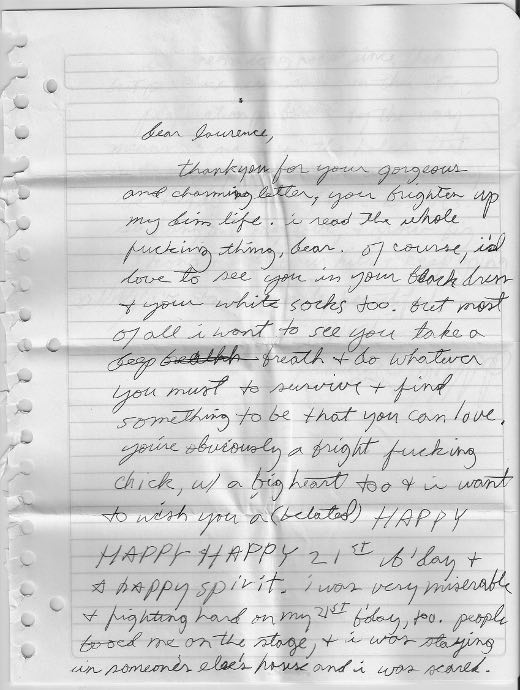 dear laurence,
thankyou for your gorgeous
and charming letter, you brighten up
my dim life. i read the whole
fucking thing, dear. of course, i'd
love to see you in your black dress
+ your white socks too. but most
of all i want to see you take a
deep breath + do whatever
you must to survive + find
something to be that you can love.
you're obviously a bright fucking
chick, w/ a big heart too + i want
to wish you a (belated) HAPPY
HAPPY HAPPY 21ST b'day +
a happy spirit. i was very miserable
+ fighting hard on my 21ST b'day, too. people
booed me on the stage, + i was staying
in someone else's house and i was scared.